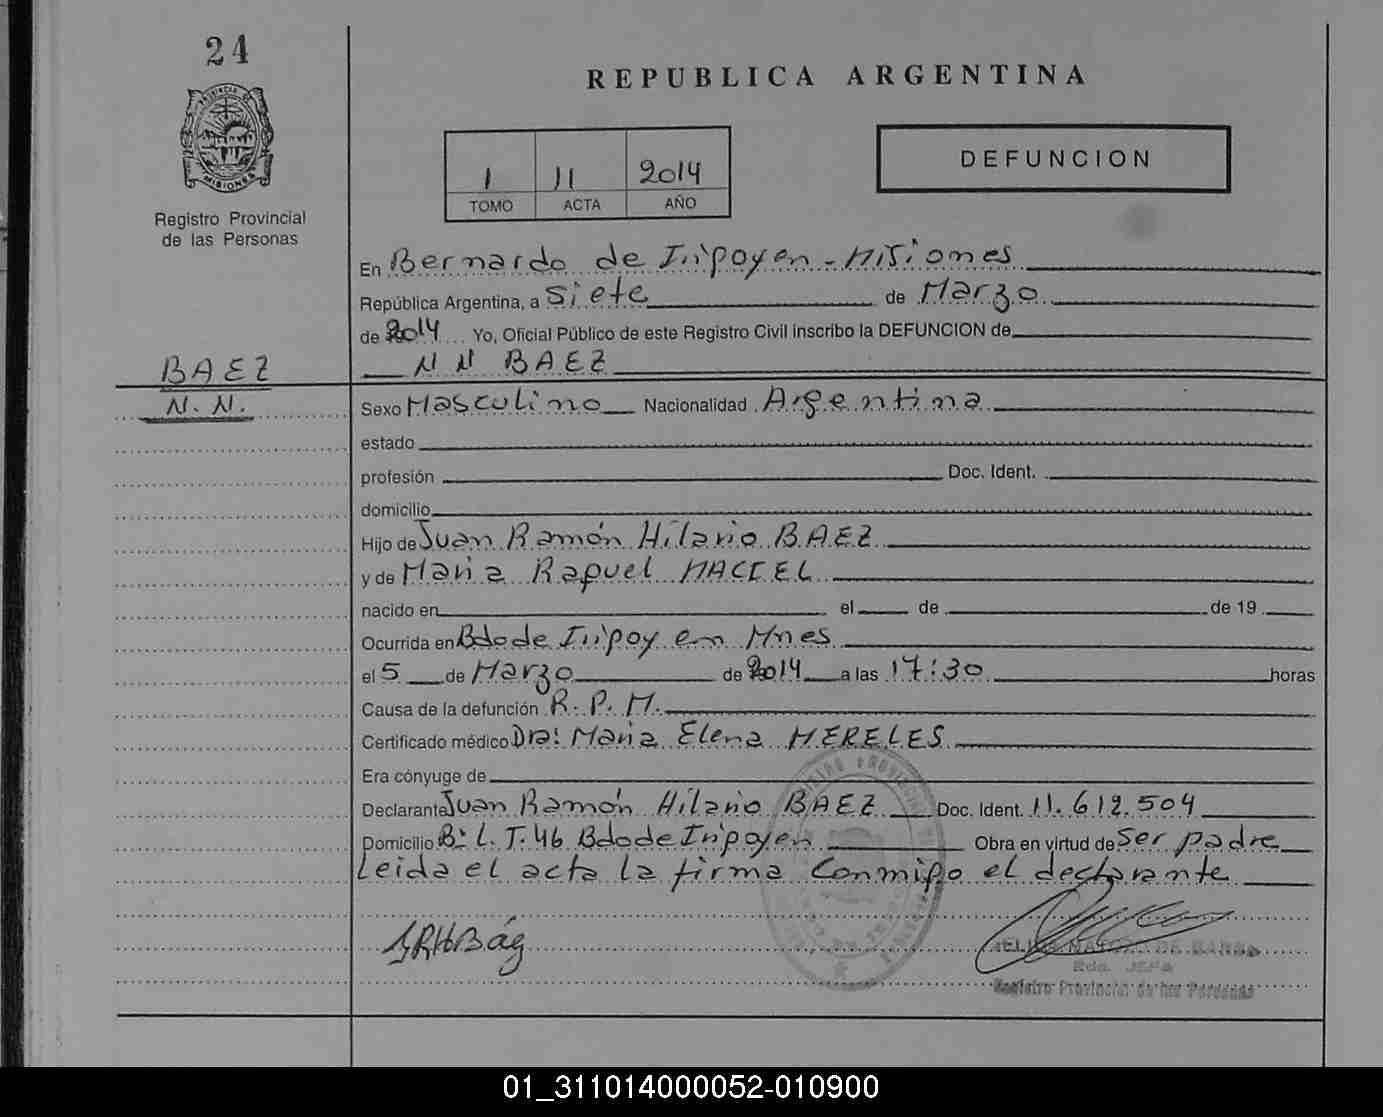 24
REPUBLICA ARGENTINA
PROVINCIA DE
MISIONES
Registro Provincial
de las Personas
1 11 2014
TOMO ACTA AÑO
DEFUNCION
En Bernardo de Irigoyen - Misiones
República Argentina, a siete de Marzo
de 2014 Yo, Oficial Público de este Registro Civil inscribo la DEFUNCION de
BAEZ
N N BAEZ
N. N.
Sexo Masculino Nacionalidad Argentina
estado
profesión Doc. Ident.
domicilio
Hijo de Juan Ramón Hilario BAEZ
y de Maria Raquel MACIEL
nacido en el de de 19
Ocurrida en Bdo de Irigoyen Mnes
el 5 de Marzo de 2014 a las 17:30 horas
Causa de la defunción R. P. M.
Certificado médico Dra: Maria Elena MERELES
Era cónyuge de
Declarante Juan Ramón Hilario BAEZ Doc. Ident. 11.612.504
Domicilio Bº L. T. 46 Bdo de Irigoyen Obra en virtud de ser padre
Leida el acta la firma conmigo el declarante
JRHBáez
Rda. JEFA
Registro Provincial de las Personas
01_311014000052-010900